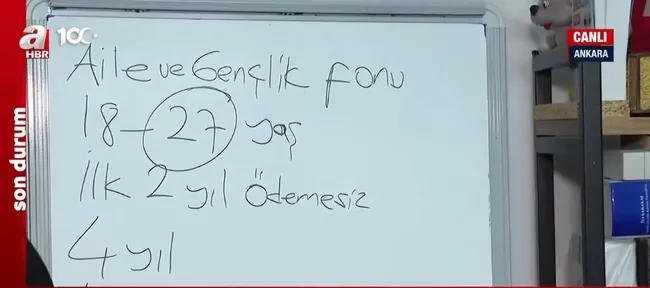 a HBR
100
CANLI
ANKARA
son durum
Aile ve Gençlik fonu
18-27 yaş
İlk 2 yıl Ödemesiz
4 yıl